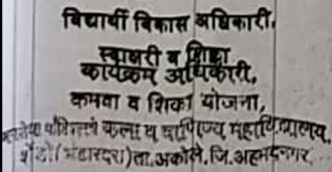 विद्यार्थी विकास अधिकारी,
स्वाक्षरी व शिक्का
कार्यक्रम अधिकारी,
कमवा व शिका योजना,
कला व वाणिज्य महाविद्यालय,
शेंडी (भंडारदरा) ता. अकोले, जि. अहमदनगर.